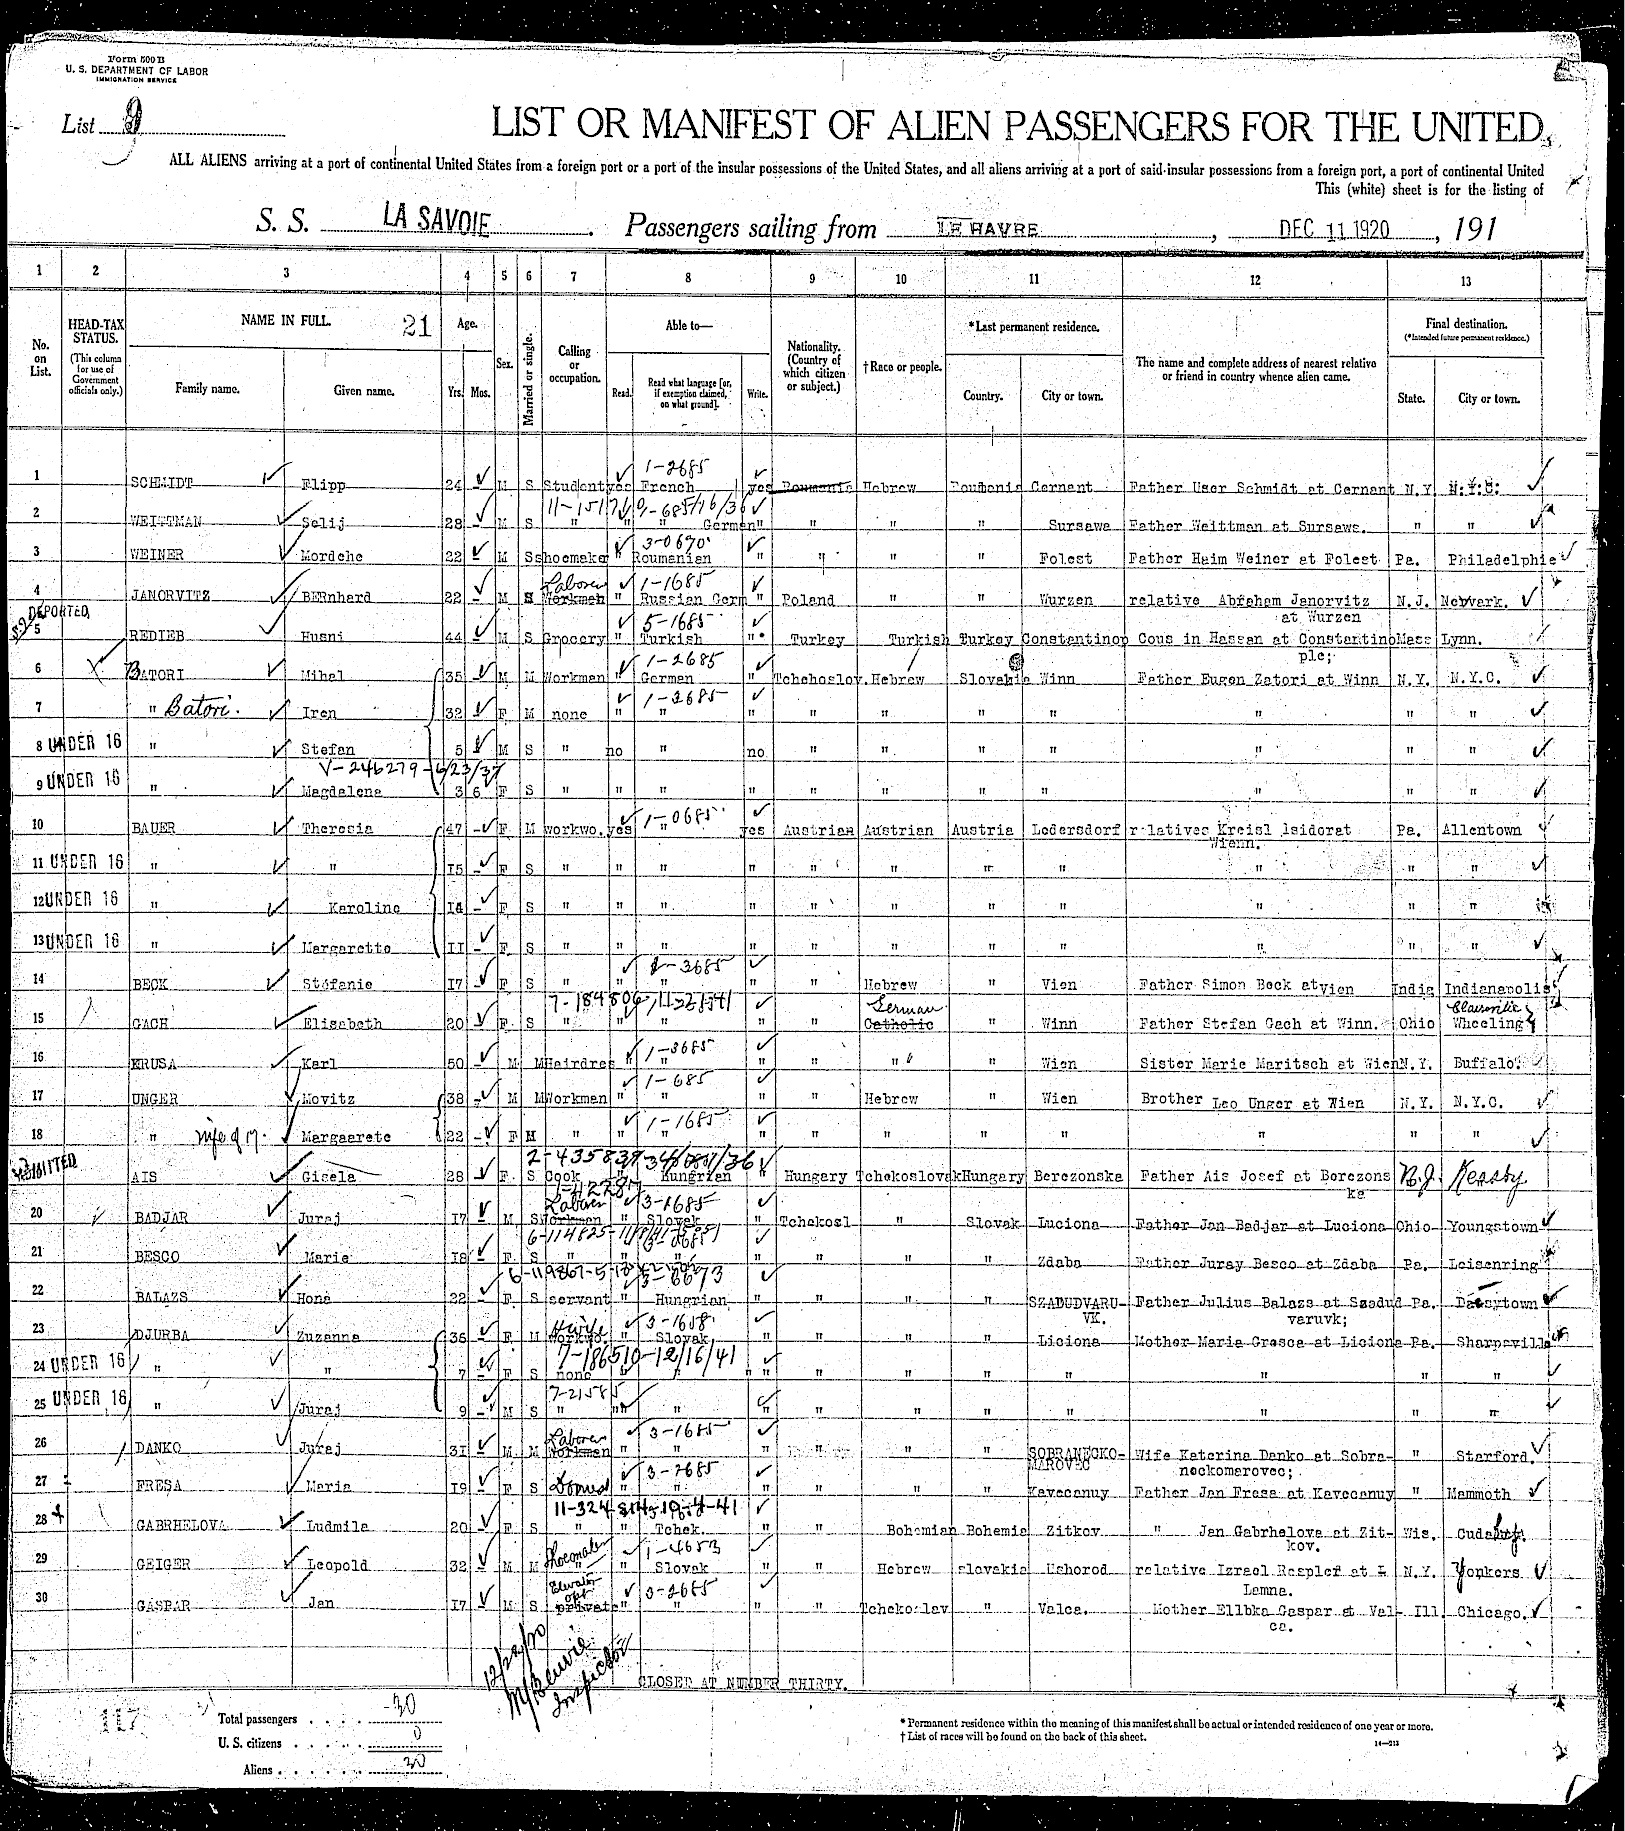 Form 500 B
U. S. DEPARTMENT OF LABOR
IMMIGRATION SERVICE
List 9
LIST OR MANIFEST OF ALIEN PASSENGERS FOR THE UNITED
ALL ALIENS arriving at a port of continental United States from a foreign port or a port of the insular possessions of the United States, and all aliens arriving at a port of said insular possessions from a foreign port, a port of continental United
This (white) sheet is for the listing of
S. S. LA SAVOIE. Passengers sailing from LE HAVRE, DEC 11 1920, 191
1 2 3 4 5 6 7 8 9 10 11 12 13
No. on List. HEAD-TAX STATUS. (This column for use of Government officials only.) NAME IN FULL. 21 Family name. Given name. Age. Yrs. Mos. Sex. Married or single. Calling or occupation. Able to— Read. Read what language [or, if exemption claimed, on what ground]. Write. Nationality. (Country of which citizen or subject.) †Race or people. *Last permanent residence. Country. City or town. The name and complete address of nearest relative or friend in country whence alien came. Final destination. (*Intended future permanent residence.) State. City or town.
1-2685
1 SCHMIDT Flipp 24 M S Student yes French yes Roumania Hebrew Roumania Cernant Father User Schmidt at Cernant N.Y. N.Y.C.
2 WEITTMAN Selij 28 M S " " German " " " " Sursawa Father Weittman at Sursawa. " "
3-0670
3 WEINER Mordche 22 M S shoemaker " Roumanian " " " " Folest Father Haim Weiner at Folest Pa. Philadelphie
Laborer 1-1685
4 JANORVITZ BERnhard 22 M S Workman " Russian Germ " Poland " " Wurzen relative Abraham Janorvitz N.J. Newark.
at Wurzen
DEPORTED, 5-1685
5 REDIEB Husni 44 M S Grocery " Turkish " Turkey Turkish Turkey Constantinop Cous in Hassan at Constantino Mass Lynn.
ple;
1-2685
6 BATORI Mihal 35 M M Workman " German " Tchehoslov. Hebrew Slovakia Winn Father Eugen Zatori at Winn N.Y. N.Y.C.
1-2685
7 " Batori. Iren 32 F M none " " " " " " " " " "
8 UNDER 16 " Stefan 5 M S " no " no " " " " " " "
V-246279-6/23/37
9 UNDER 16 " Magdalena 3 6 F S " " " " " " " " " " "
1-0685
10 BAUER Theresia 47 F M workwo. yes " yes Austrian Austrian Austria Ledersdorf relatives Kreisl Isidorat Pa. Allentown
Wienn.
11 UNDER 16 " " 15 F S " " " " " " " " " " "
12 UNDER 16 " Karoline 14 F S " " " " " " " " " " "
13 UNDER 16 " Margarette 11 F S " " " " " " " " " " "
3685
14 BECK Stefanie 17 F S " " " " " Hebrew " Vien Father Simon Beck at vien Indig Indianapolis
German
15 GACH Elisabeth 20 F S " " " " " Catholic " Winn Father Stefan Gach at Winn. Ohio Wheeling
1-3685
16 KRUSA Karl 50 M M Hairdres " " " " " " Wien Sister Marie Maritsch at Wien N.Y. Buffalo.
1-685
17 UNGER Movitz 38 M M Workman " " " " Hebrew " Wien Brother Leo Unger at Wien N.Y. N.Y.C.
1-1685
18 " wife of 17. Margaarete 22 F M " " " " " " " " " " "
ADMITTED
AIS Gisela 28 F S Cook " Hungrian " Hungary Tchekoslovak Hungary Berezonska Father Ais Josef at Borezons N.J. Keasby
ka
Laborer 3-1685
20 BADJAR Juraj 17 M S Workman " Slovak " Tchekosl " Slovak Luciona Father Jan Badjar at Luciona Ohio Youngstown
21 BESCO Marie 18 F S " " " " " " " Zdaba Father Juray Besco at Zdaba Pa. Leisenring
22 BALAZS Hona 22 F S servant " Hungrian " " " " SZADUDVARU- Father Julius Balazs at Szadud Pa. Daisytown
VK. varuvk;
H wife 3-1658
23 DJURBA Zuzanna 36 F M Workwo. " Slovak " " " " Liciona Mother Maria Gresca at Liciona Pa. Sharpsville
7-186510-12/16/41
24 UNDER 16 " " 7 F S none " " " " " " " " " "
25 UNDER 16 " Juraj 9 M S " " " " " " " " " " "
Laborer 3-1685
26 DANKO Juraj 31 M M Workman " " " " " SOBRANECKO- Wife Katerina Danko at Sobra- " Starford.
MAROVEC neckomarovec;
3-2685
27 FRESA Maria 19 F S " " " " " " Kavecanuy Father Jan Fresa at Kavecanuy " Mammoth
28 GABRHELOVA Ludmila 20 F S " " Tchek. " " Bohemian Bohemia Zitkov " Jan Gabrhelova at Zit- Wis. Cudahy.
kov.
Shoemaker 1-4653
29 GEIGER Leopold 32 M M " " Slovak " " Hebrew slovakia Ushorod relative Izrael Raapler at L N.Y. Yonkers
Lemne.
Elevator opt 3-2685
30 GASPAR Jan 17 M S private " " " " Tchekoslav " Valca. Mother Ellbka Gaspar at Val- Ill. Chicago.
ca.
12/22/20
Inspector
CLOSED AT NUMBER THIRTY.
117
Total passengers 30
U. S. citizens 0
Aliens 30
* Permanent residence within the meaning of this manifest shall be actual or intended residence of one year or more.
† List of races will be found on the back of this sheet.
14—213